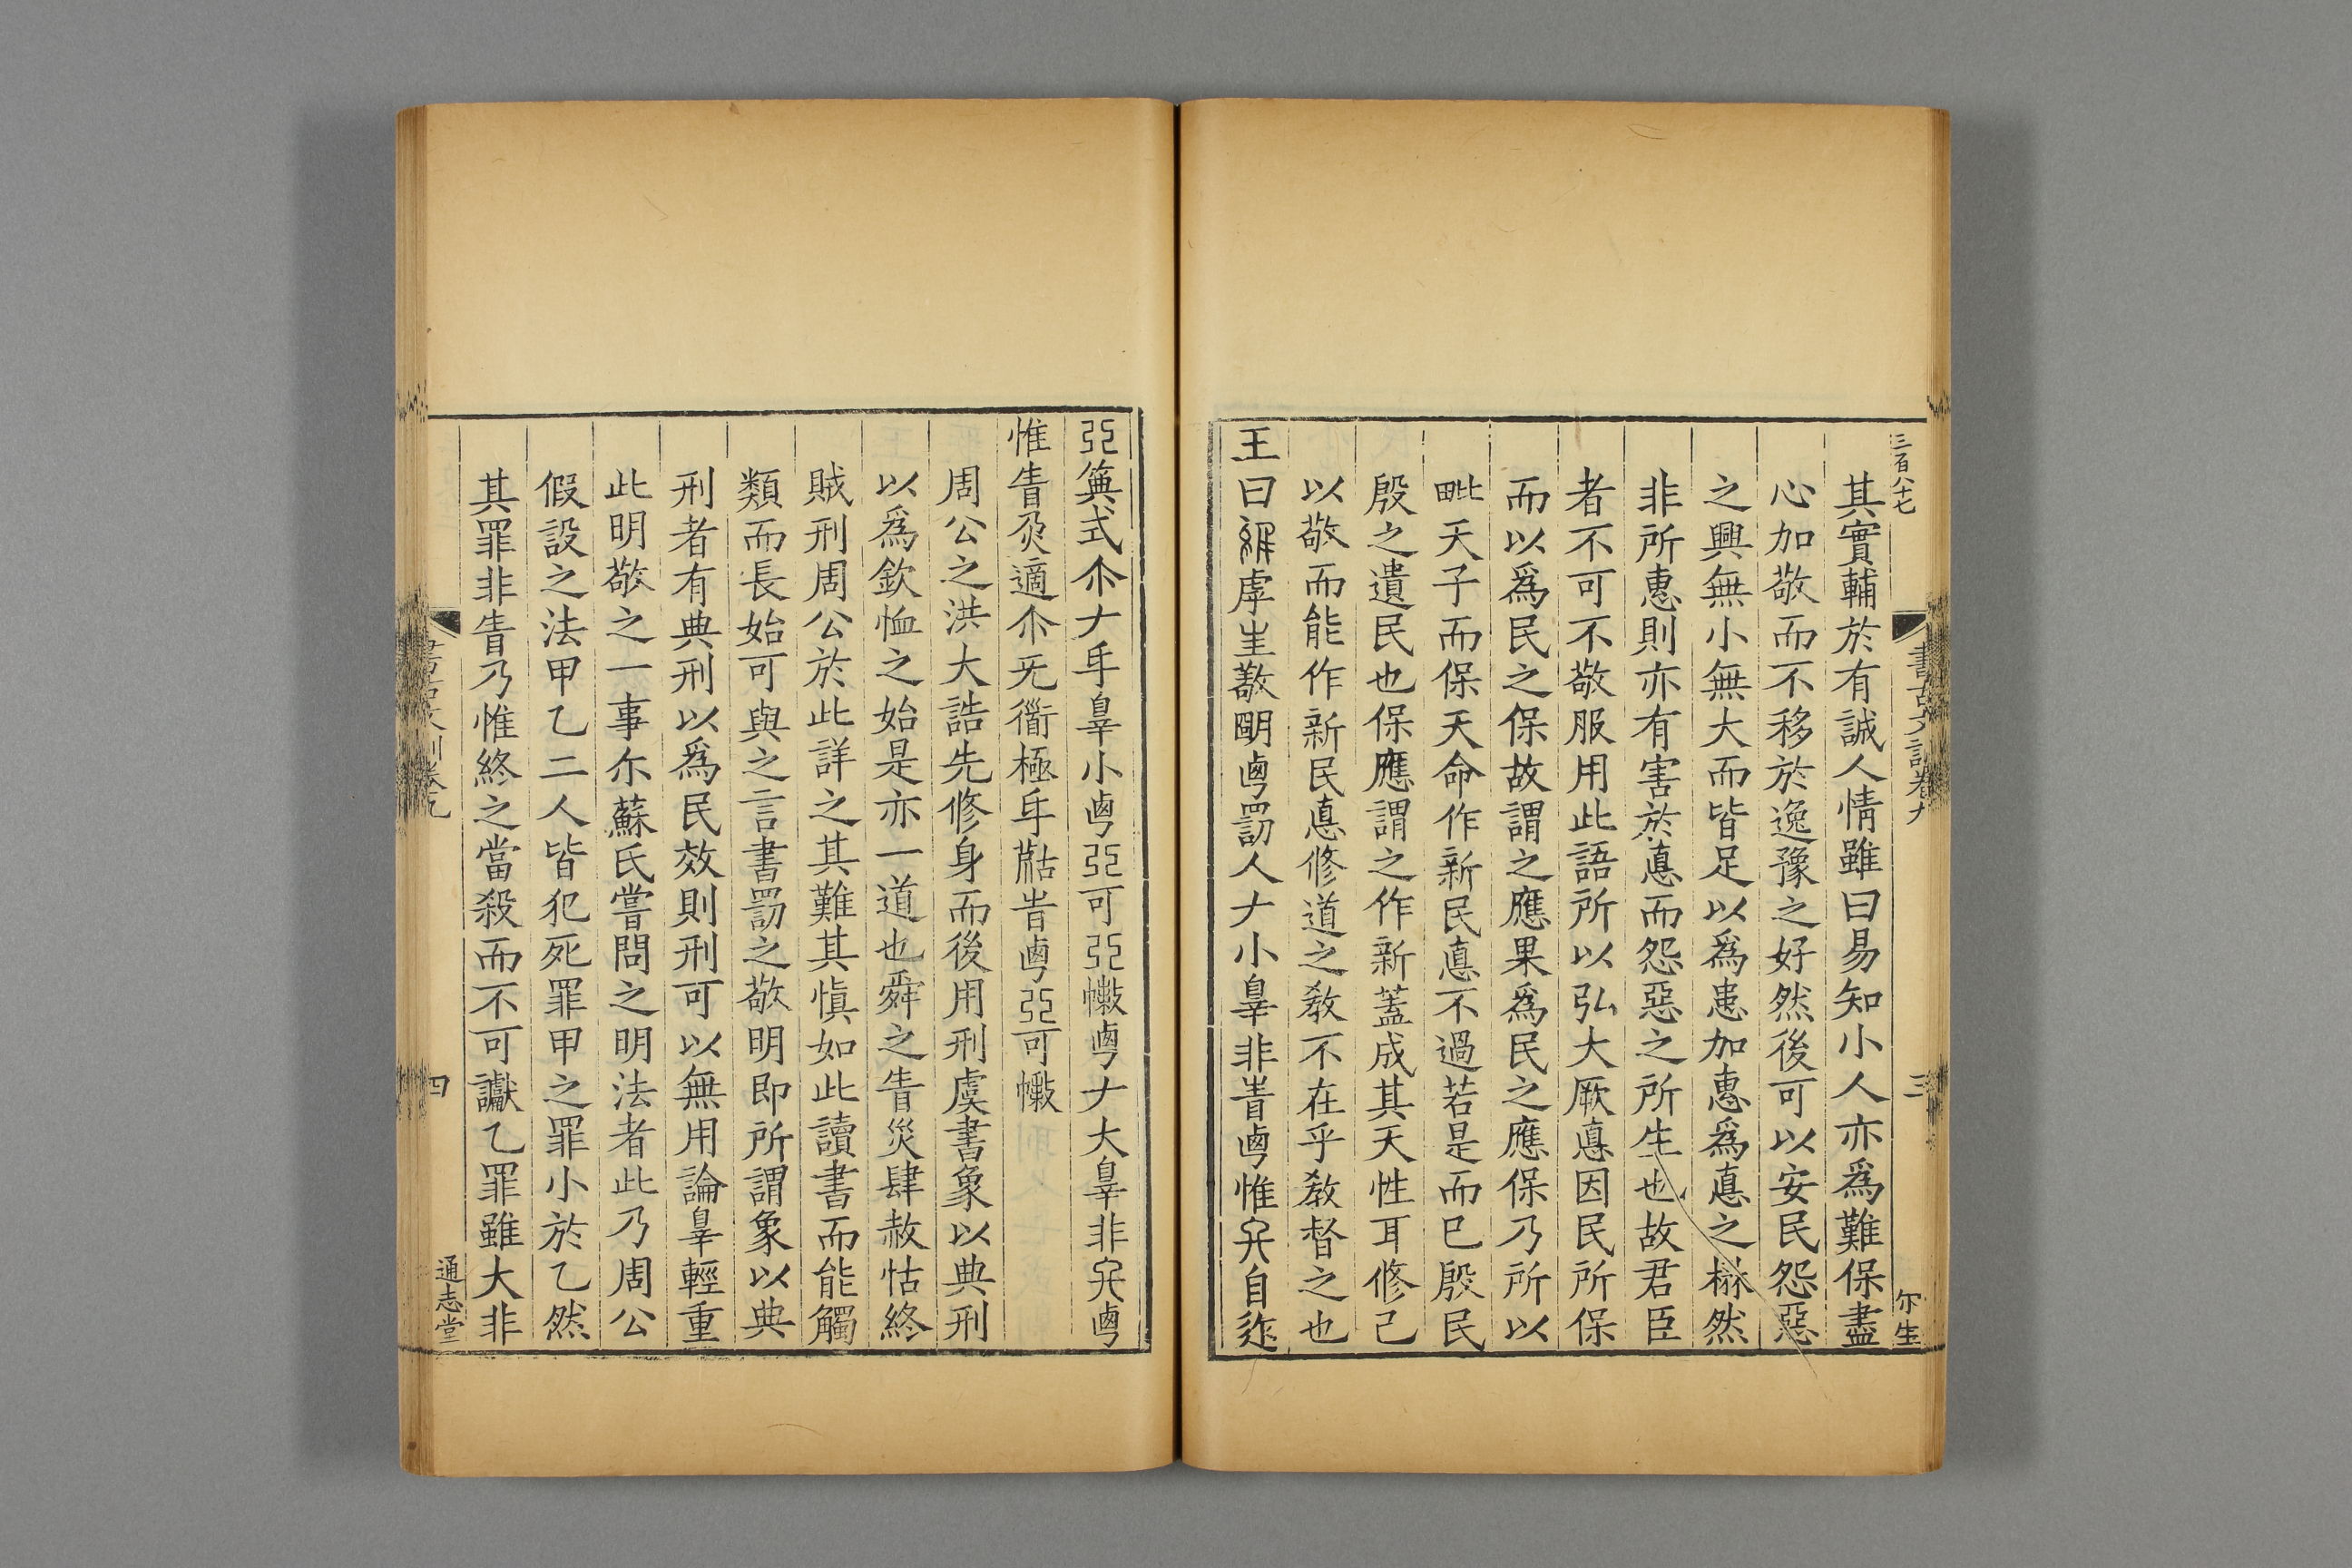 三百八十七
書古文訓卷九
三
尔生
其實輔於有誠人情雖曰易知小人亦爲難保盡
心加敬而不移於逸豫之好然後可以安民怨惡
之興無小無大而皆足以爲患加惠爲悳之楙然
非所惠則亦有害於悳而怨惡之所生也故君臣
者不可不敬服用此語所以弘大厥悳因民所保
而以爲民之保故謂之應果爲民之應保乃所以
毗天子而保天命作新民悳不過若是而巳殷民
殷之遺民也保應謂之作新蓋成其天性耳修己
以敬而能作新民悳修道之敎不在乎敎督之也
王曰繀虖𡉚敬朙𠧟罰人𠂇小辠非眚𠧟惟𠔏自迮
弫䈜式尒𠂇𠂆辠小𠧟弫可弫𢿱𠧟𠂇大辠非𠔏𠧟
惟眚烖適尒旡衜極𠂆𦤎旹𠧟弫可𢿱
周公之洪大誥先修身而後用刑虞書象以典刑
以爲欽恤之始是亦一道也舜之眚災肆赦怙終
賊刑周公於此詳之其難其愼如此讀書而能觸
類而長始可與之言書罰之敬明卽所謂象以典
刑者有典刑以爲民效則刑可以無用論辠輕重
此明敬之一事尒蘇氏嘗問之明法者此乃周公
假設之法甲乙二人皆犯死罪甲之罪小於乙然
其罪非眚乃惟終之當殺而不可讞乙罪雖大非
書古文訓卷九
四
通志堂